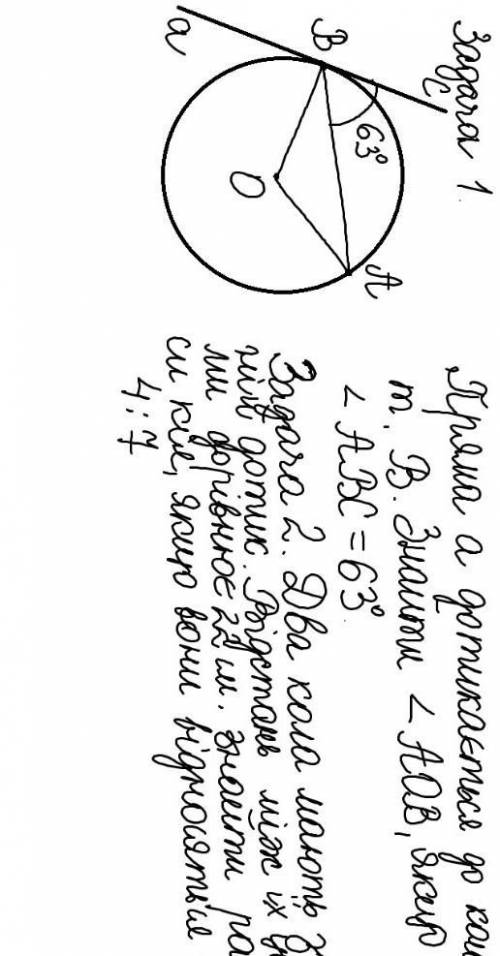 Задача 1.
C
B
a
63°
O
A
Пряма a дотикається до кол
т. B. Знайти ∠AOB, якщо
∠ABC = 63°
Задача 2. Два кола мають з
ній дотик. Відстань між їх ц
ми дорівнює 22 м. Знайти ра
си кіл, якщо вони відносяться
4:7